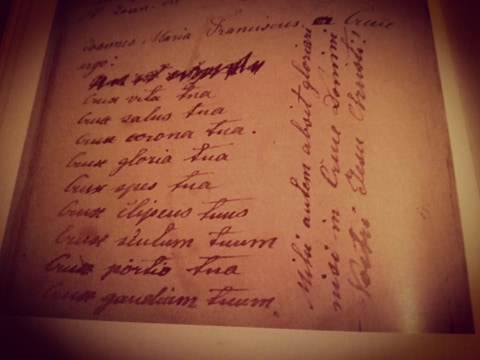 Joannes Maria Franciscus. a Cruce
ergo:
Crux vita tua
Crux salus tua
Crux corona tua.
Crux gloria tua
Crux spes tua
Crux clipeus tuus
Crux scutum tuum
Crux portio tua
Crux gaudium tuum.
Mihi autem absit gloriari
nisi in Cruce Domini
Nostri Jesu Christi!